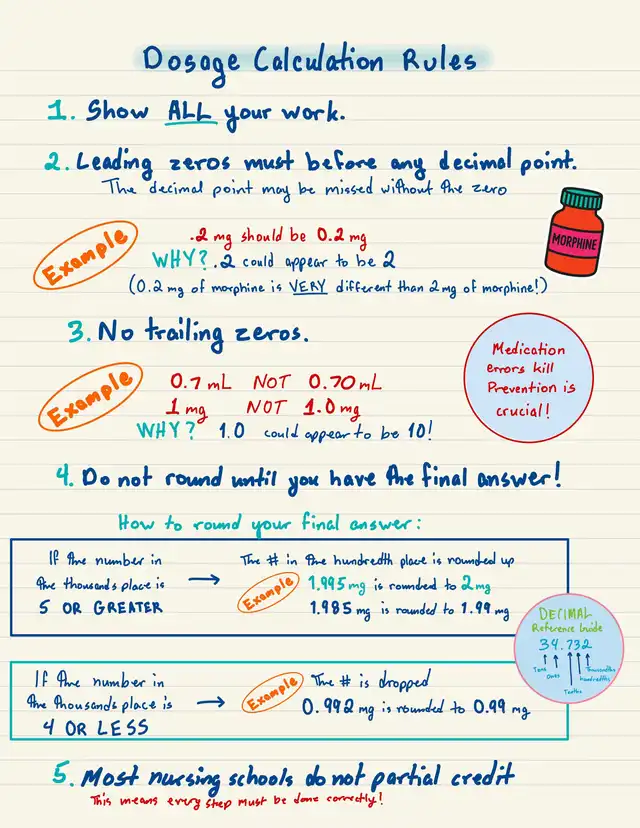 Dosage Calculation Rules
1. Show ALL your work.
2. Leading zeros must before any decimal point.
The decimal point may be missed without the zero
Example
.2 mg should be 0.2 mg
WHY? .2 could appear to be 2
(0.2 mg of morphine is VERY different than 2 mg of morphine!)
MORPHINE
3. No trailing zeros.
Example
0.7 mL NOT 0.70 mL
1 mg NOT 1.0 mg
WHY? 1.0 could appear to be 10!
Medication
errors kill
Prevention is
crucial!
4. Do not round until you have the final answer!
How to round your final answer:
If the number in
the thousands place is
5 OR GREATER
The # in the hundredth place is rounded up
Example
1.995 mg is rounded to 2 mg
1.985 mg is rounded to 1.99 mg
DECIMAL
Reference Guide
34.732
Tens
ones
Tenths
hundredths
Thousandths
If the number in
the thousands place is
4 OR LESS
Example
The # is dropped
0.992 mg is rounded to 0.99 mg
5. Most nursing schools do not partial credit
This means every step must be done correctly!